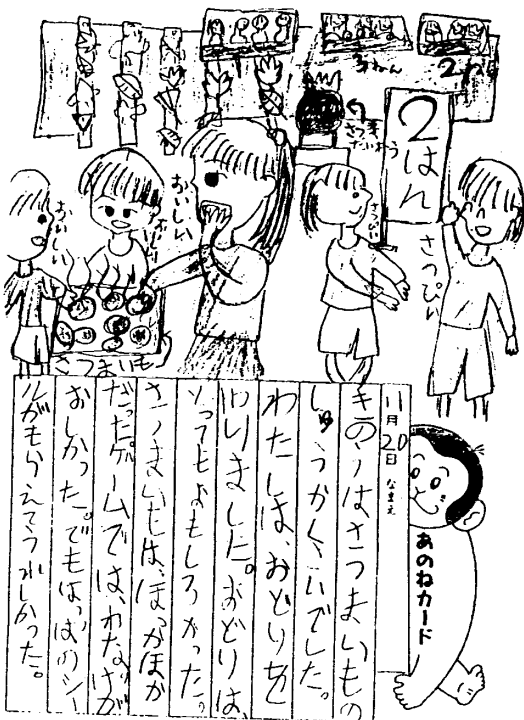 2はん
さつぴぃ
おいしい
おいしい
さつまいも
11月20日 なまえ
きのうはさつまいもの
しゅうかくさいでした。
わたしは、おどりを
りました。おどりは、
とってもおもしろかった。
さつまいもは、ほっかほか
だった。ゲームでは、わなげが
おしかった。でもはっぱのシー
ルがもらえてうれしかった。
あのねカード